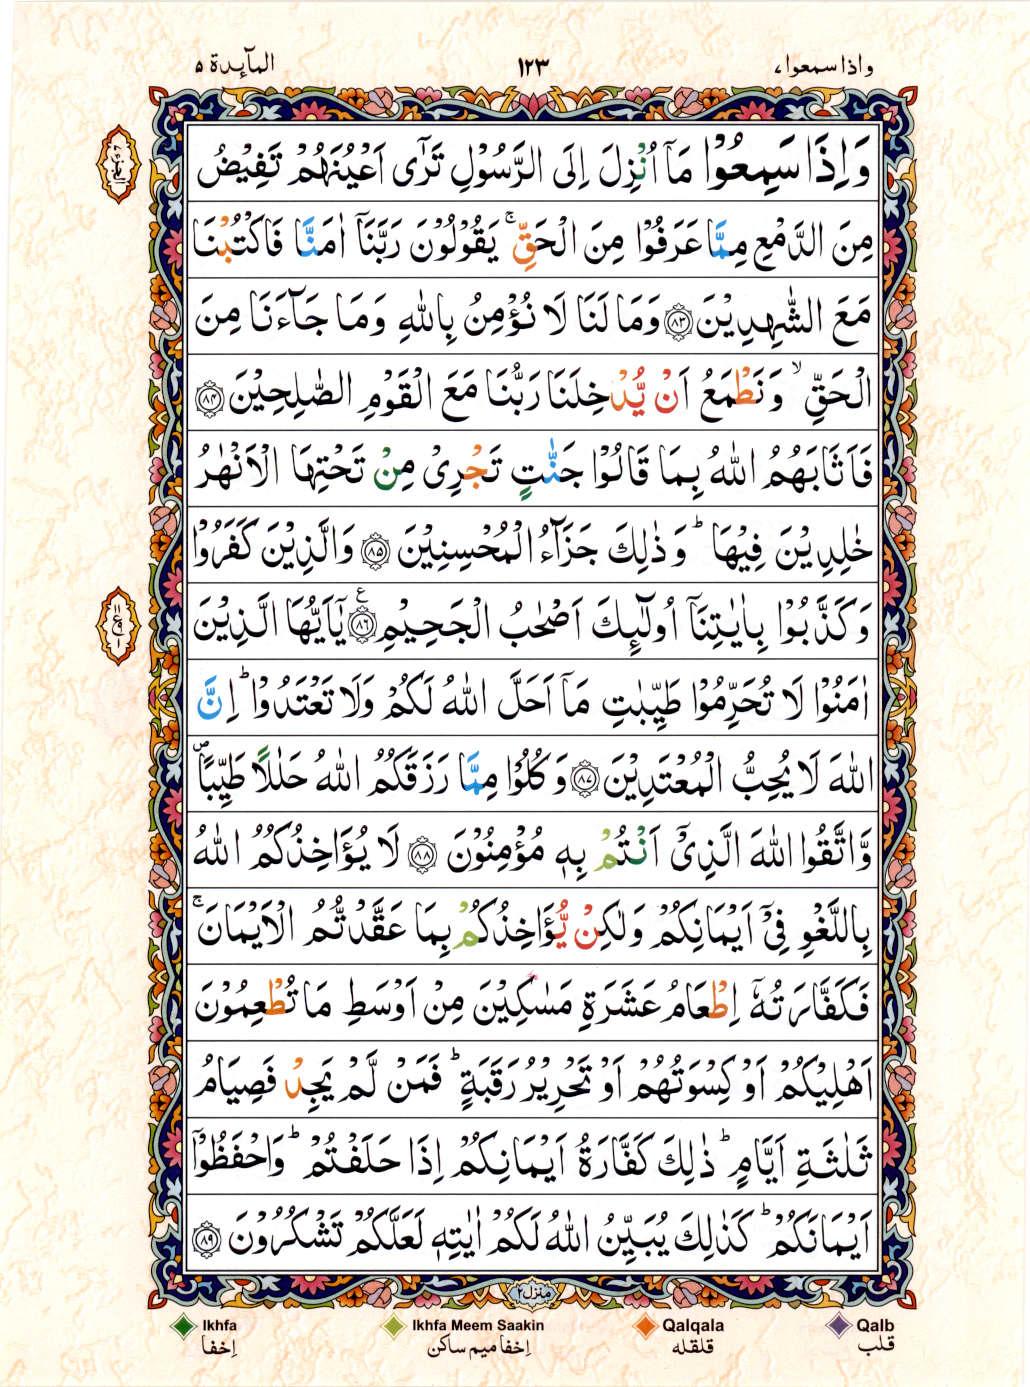 واذا سمعوا ٧
١٢٣
المآىِٕدة ٥
وَاِذَا سَمِعُوْا مَاۤ اُنْزِلَ اِلَى الرَّسُوْلِ تَرٰۤى اَعْيُنَهُمْ تَفِيْضُ
مِنَ الدَّمْعِ مِمَّا عَرَفُوْا مِنَ الْحَقِّ ۚ يَقُوْلُوْنَ رَبَّنَاۤ اٰمَنَّا فَاكْتُبْنَا
مَعَ الشّٰهِدِيْنَ ﴿٨٣﴾ وَمَا لَنَا لَا نُؤْمِنُ بِاللّٰهِ وَمَا جَآءَنَا مِنَ
الْحَقِّ ۙ وَنَطْمَعُ اَنْ يُّدْخِلَنَا رَبُّنَا مَعَ الْقَوْمِ الصّٰلِحِيْنَ ﴿٨٤﴾
فَاَثَابَهُمُ اللّٰهُ بِمَا قَالُوْا جَنّٰتٍ تَجْرِىْ مِنْ تَحْتِهَا الْاَنْهٰرُ
خٰلِدِيْنَ فِيْهَا ؕ وَذٰلِكَ جَزَآءُ الْمُحْسِنِيْنَ ﴿٨٥﴾ وَالَّذِيْنَ كَفَرُوْا
وَكَذَّبُوْا بِاٰيٰتِنَاۤ اُولٰٓىِٕكَ اَصْحٰبُ الْجَحِيْمِ ﴿٨٦﴾ ع يٰۤاَيُّهَا الَّذِيْنَ
اٰمَنُوْا لَا تُحَرِّمُوْا طَيِّبٰتِ مَاۤ اَحَلَّ اللّٰهُ لَكُمْ وَلَا تَعْتَدُوْا ؕ اِنَّ
اللّٰهَ لَا يُحِبُّ الْمُعْتَدِيْنَ ﴿٨٧﴾ وَكُلُوْا مِمَّا رَزَقَكُمُ اللّٰهُ حَلٰلًا طَيِّبًا ۪
وَّاتَّقُوا اللّٰهَ الَّذِىْۤ اَنْتُمْ بِهٖ مُؤْمِنُوْنَ ﴿٨٨﴾ لَا يُؤَاخِذُكُمُ اللّٰهُ
بِاللَّغْوِ فِىْۤ اَيْمَانِكُمْ وَلٰكِنْ يُّؤَاخِذُكُمْ بِمَا عَقَّدْتُّمُ الْاَيْمَانَ ۚ
فَكَفَّارَتُهٗۤ اِطْعَامُ عَشَرَةِ مَسٰكِيْنَ مِنْ اَوْسَطِ مَا تُطْعِمُوْنَ
اَهْلِيْكُمْ اَوْ كِسْوَتُهُمْ اَوْ تَحْرِيْرُ رَقَبَةٍ ؕ فَمَنْ لَّمْ يَجِدْ فَصِيَامُ
ثَلٰثَةِ اَيَّامٍ ؕ ذٰلِكَ كَفَّارَةُ اَيْمَانِكُمْ اِذَا حَلَفْتُمْ ؕ وَاحْفَظُوْۤا
اَيْمَانَكُمْ ؕ كَذٰلِكَ يُبَيِّنُ اللّٰهُ لَكُمْ اٰيٰتِهٖ لَعَلَّكُمْ تَشْكُرُوْنَ ﴿٨٩﴾
منزل ٢
Ikhfa
Ikhfa Meem Saakin
Qalqala
Qalb
اِخفا
اِخفا میم ساکن
قلقله
قلب